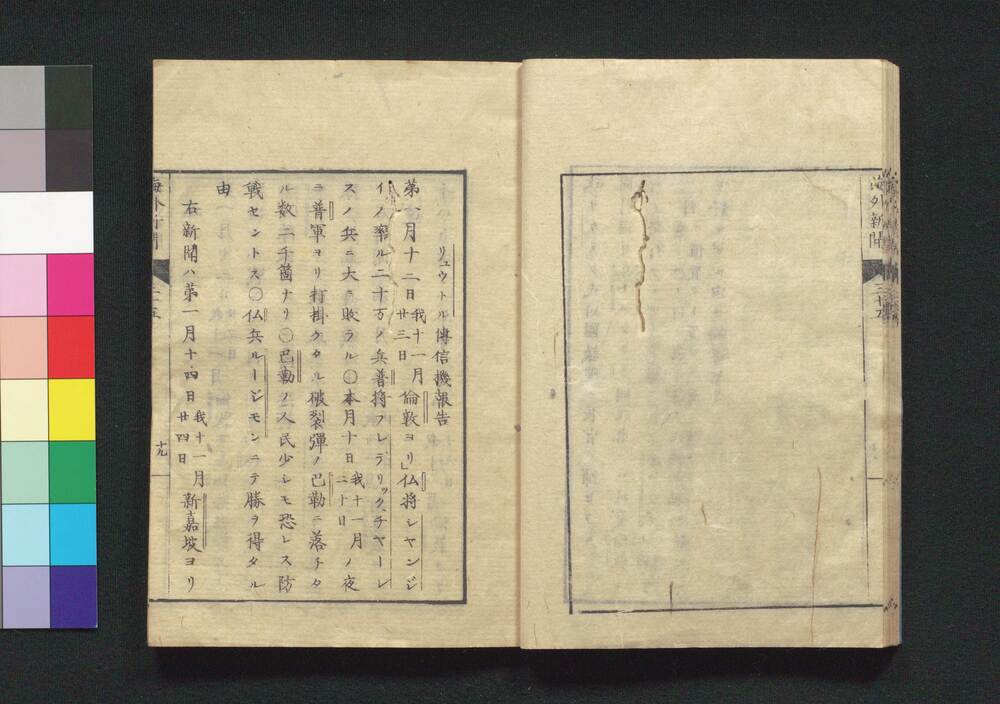 海外新聞
リュウトル傳信機報告
第八月十二日我十一月廿三日倫敦ヨリ」仏将シヤンジ
イノ率ル二十万ノ兵普将フレデリックチヤーレ
スノ兵ニ大ニ敗ラル〇本月十日我十一月二十日ノ夜
ニ普軍ヨリ打掛ケタル破裂彈ノ巴勒ニ落チタ
ル数二千箇ナリ〇巴勒ノ人民少シモ恐レス防
戦セントス〇仏兵ルージモンニテ勝ヲ得タル
由
右新聞ハ第一月十四日我十一月廿四日新嘉坡ヨリ
十九
海外新聞